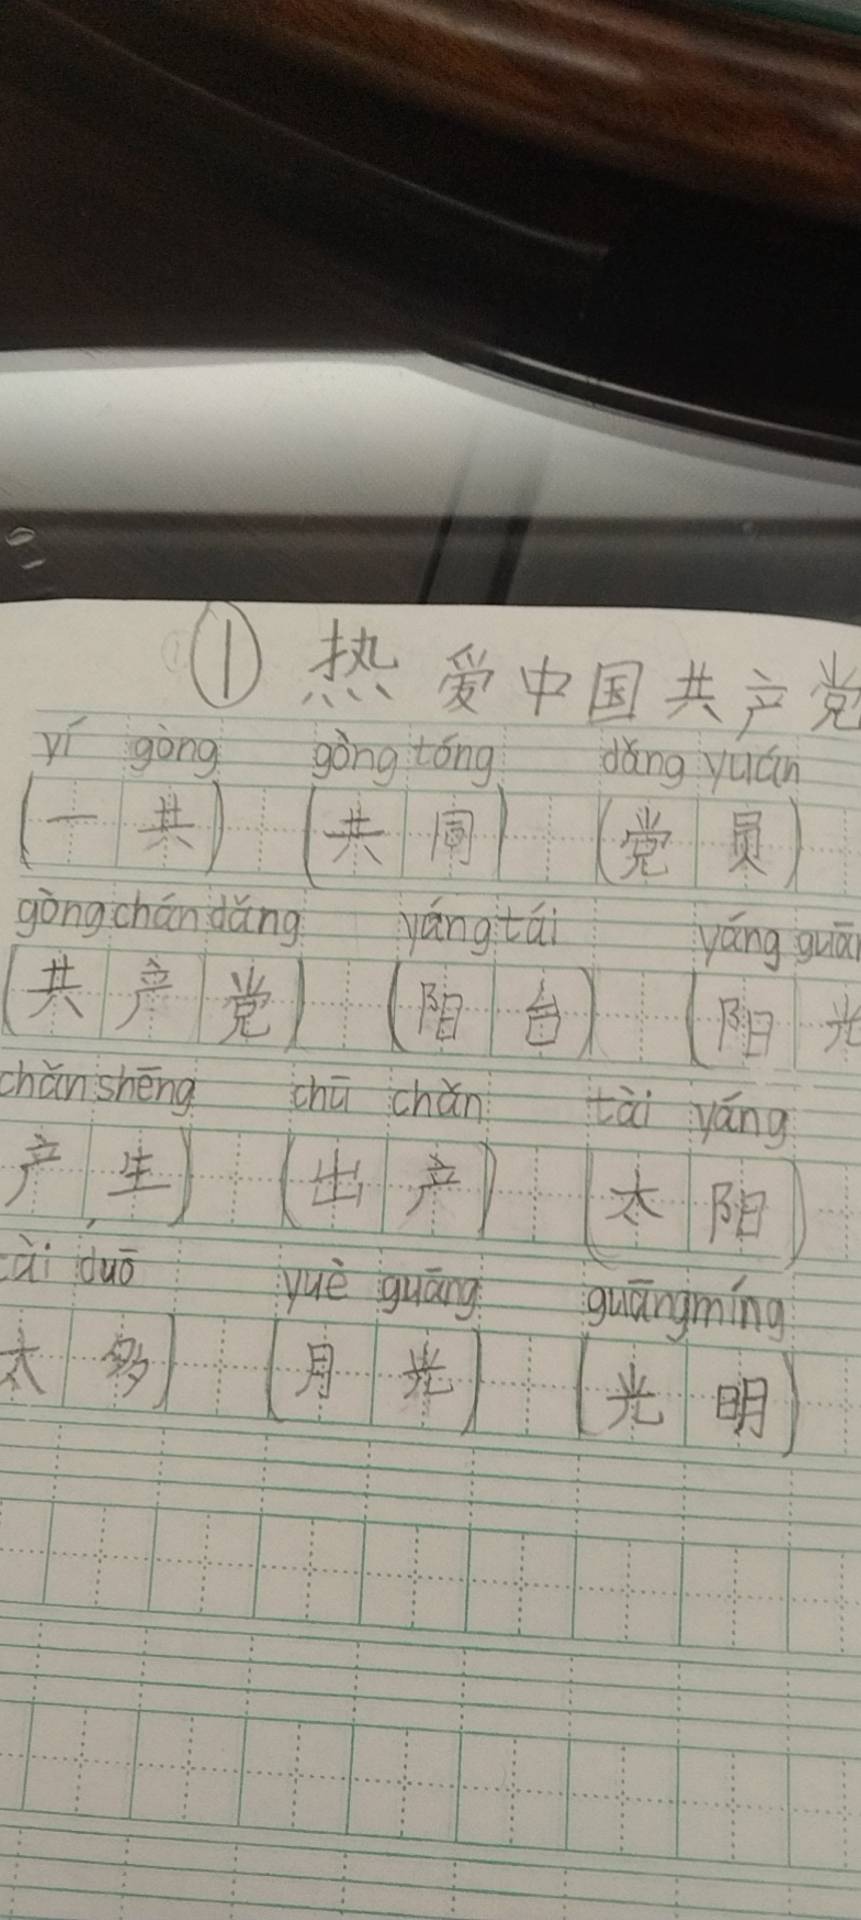 ① 热爱中国共产党
yí gòng gòng tóng dǎng yuán
(一共) (共同) (党员)
gòng chán dǎng yáng tái yáng guān
(共产党) (阳台) (阳光
chǎn shēng chū chǎn tài yáng
产生) (出产) (太阳)
tài duō yuè guāng guāng míng
太多) (月光) (光明)